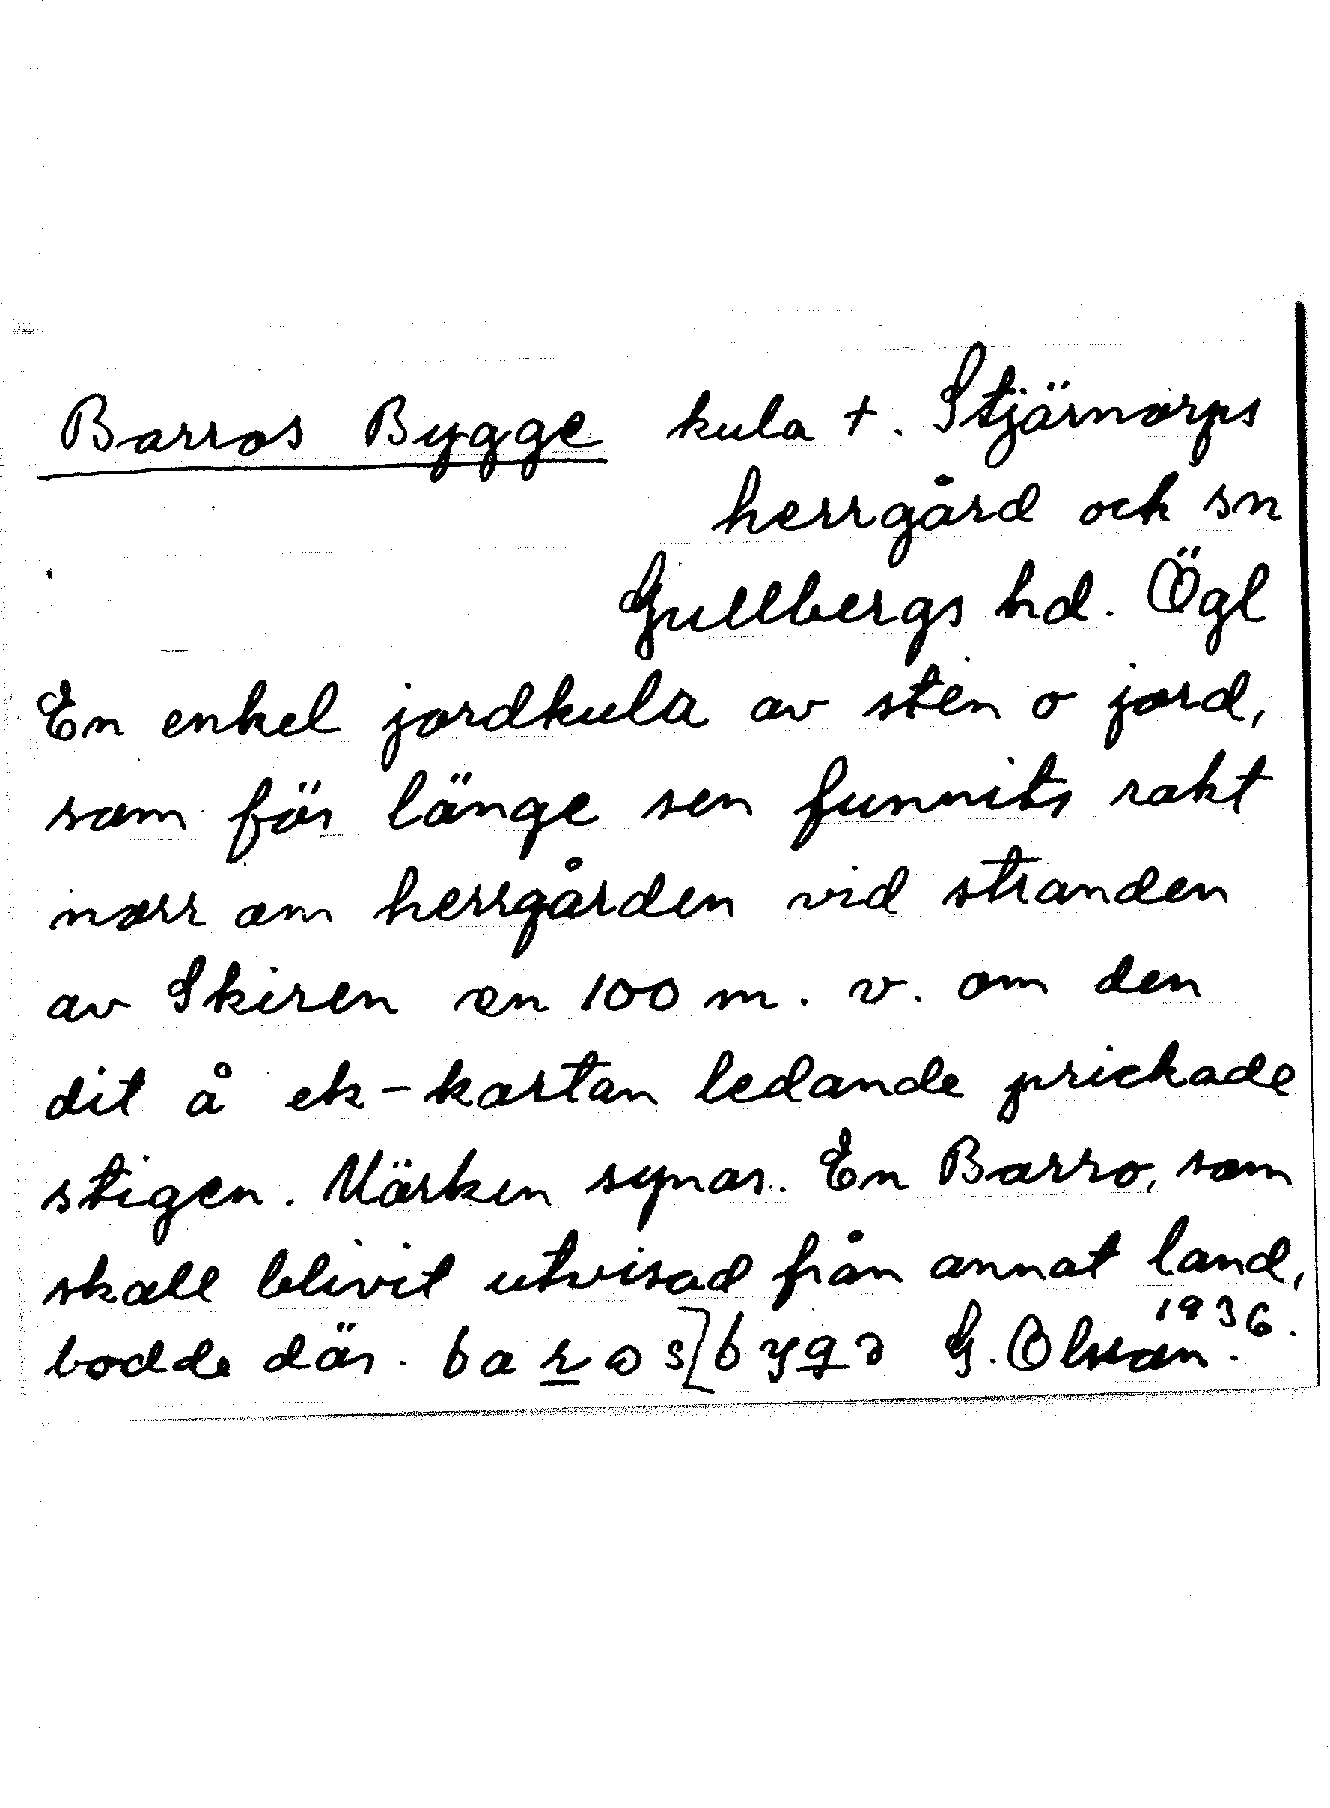 Barros Bygge kula +. Stjärnorps
herrgård och sn
Gullbergs hd. Ögl
En enkel jordkula av sten o jord,
som för länge sen funnits rakt
norr om herrgården vid stranden
av Skiren en 100 m. v. om den
dit å ek-kartan ledande prickade
stigen. Märken synas. En Barro, som
skall blivit utvisad från annat land,
bodde där. G. Olsson. 1936.